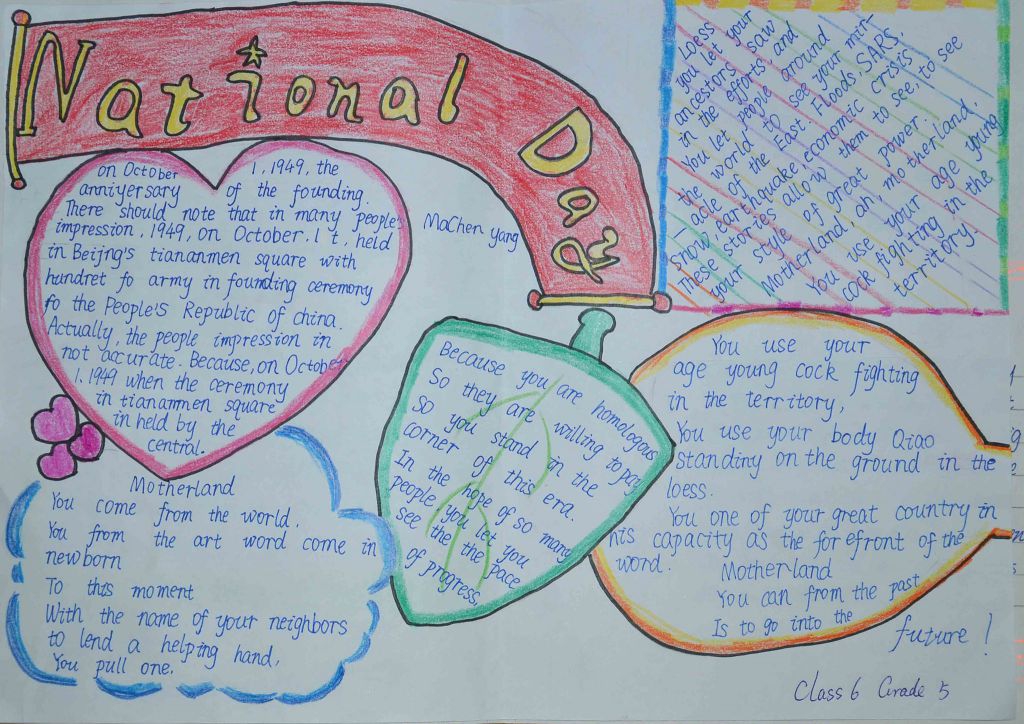 National Day
on October 1, 1949, the
anniyersary of the founding.
There should note that in many people's
impression, 1949, on October. 1 t, held
in Beijing's tiananmen square with
hundret fo army in founding ceremony
fo the People's Republic of china.
Actually, the people impression in
not accurate. Because, on October
1. 1949 when the ceremony
in tiananmen square
in held by the
central.
MaChen yang
Loess
you let your
ancestors saw
in the efforts and
You let people around
the world to see your mir-
acle of the East. Floods, SARS,
snow, earthquake, economic crisis
These stories allow them to see, to see
your style of great power.
Motherland ah, motherland,
You use your age young
cock fighting in the
territory.
Because you are homologous
So they are willing to pay
SO you stand in the
corner of this era.
In the hope of so many
people, you let you
see the the pace
of progress
You use your
age young cock fighting
in the territory,
You use your body Qiao
standiny on the ground in the
loess.
You one of your great country in
his capacity as the forefront of the
word.
Motherland
You can from the past
Is to go into the
future!
Motherland
You come from the world.
You from the art word come in
newborn
To this moment
With the name of your neighbors
to lend a helping hand,
You pull one.
Class 6 Grade 5